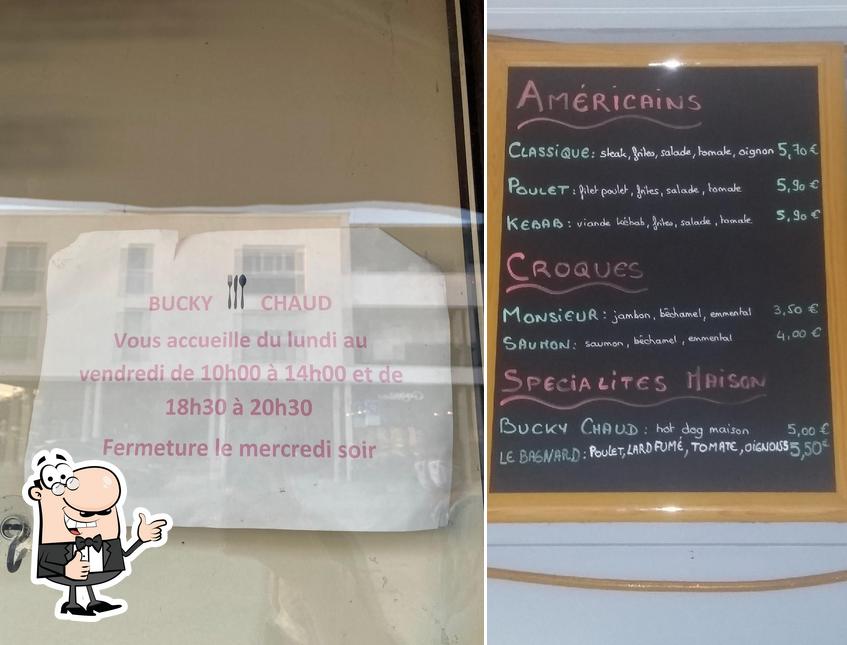 BUCKY CHAUD
Vous accueille du lundi au
vendredi de 10h00 à 14h00 et de
18h30 à 20h30
Fermeture le mercredi soir
AMÉRICAINS
CLASSIQUE : steak, frites, salade, tomate, oignon 5,70 €
POULET : filet poulet, frites, salade, tomate 5,90 €
KEBAB : viande kébab, frites, salade, tomate 5,90 €
CROQUES
MONSIEUR : jambon, béchamel, emmental 3,50 €
SAUMON : saumon, béchamel, emmental 4,00 €
SPECIALITES MAISON
BUCKY CHAUD : hot dog maison 5,00 €
LE BAGNARD : POULET, LARD FUMÉ, TOMATE, OIGNONS 5,50€